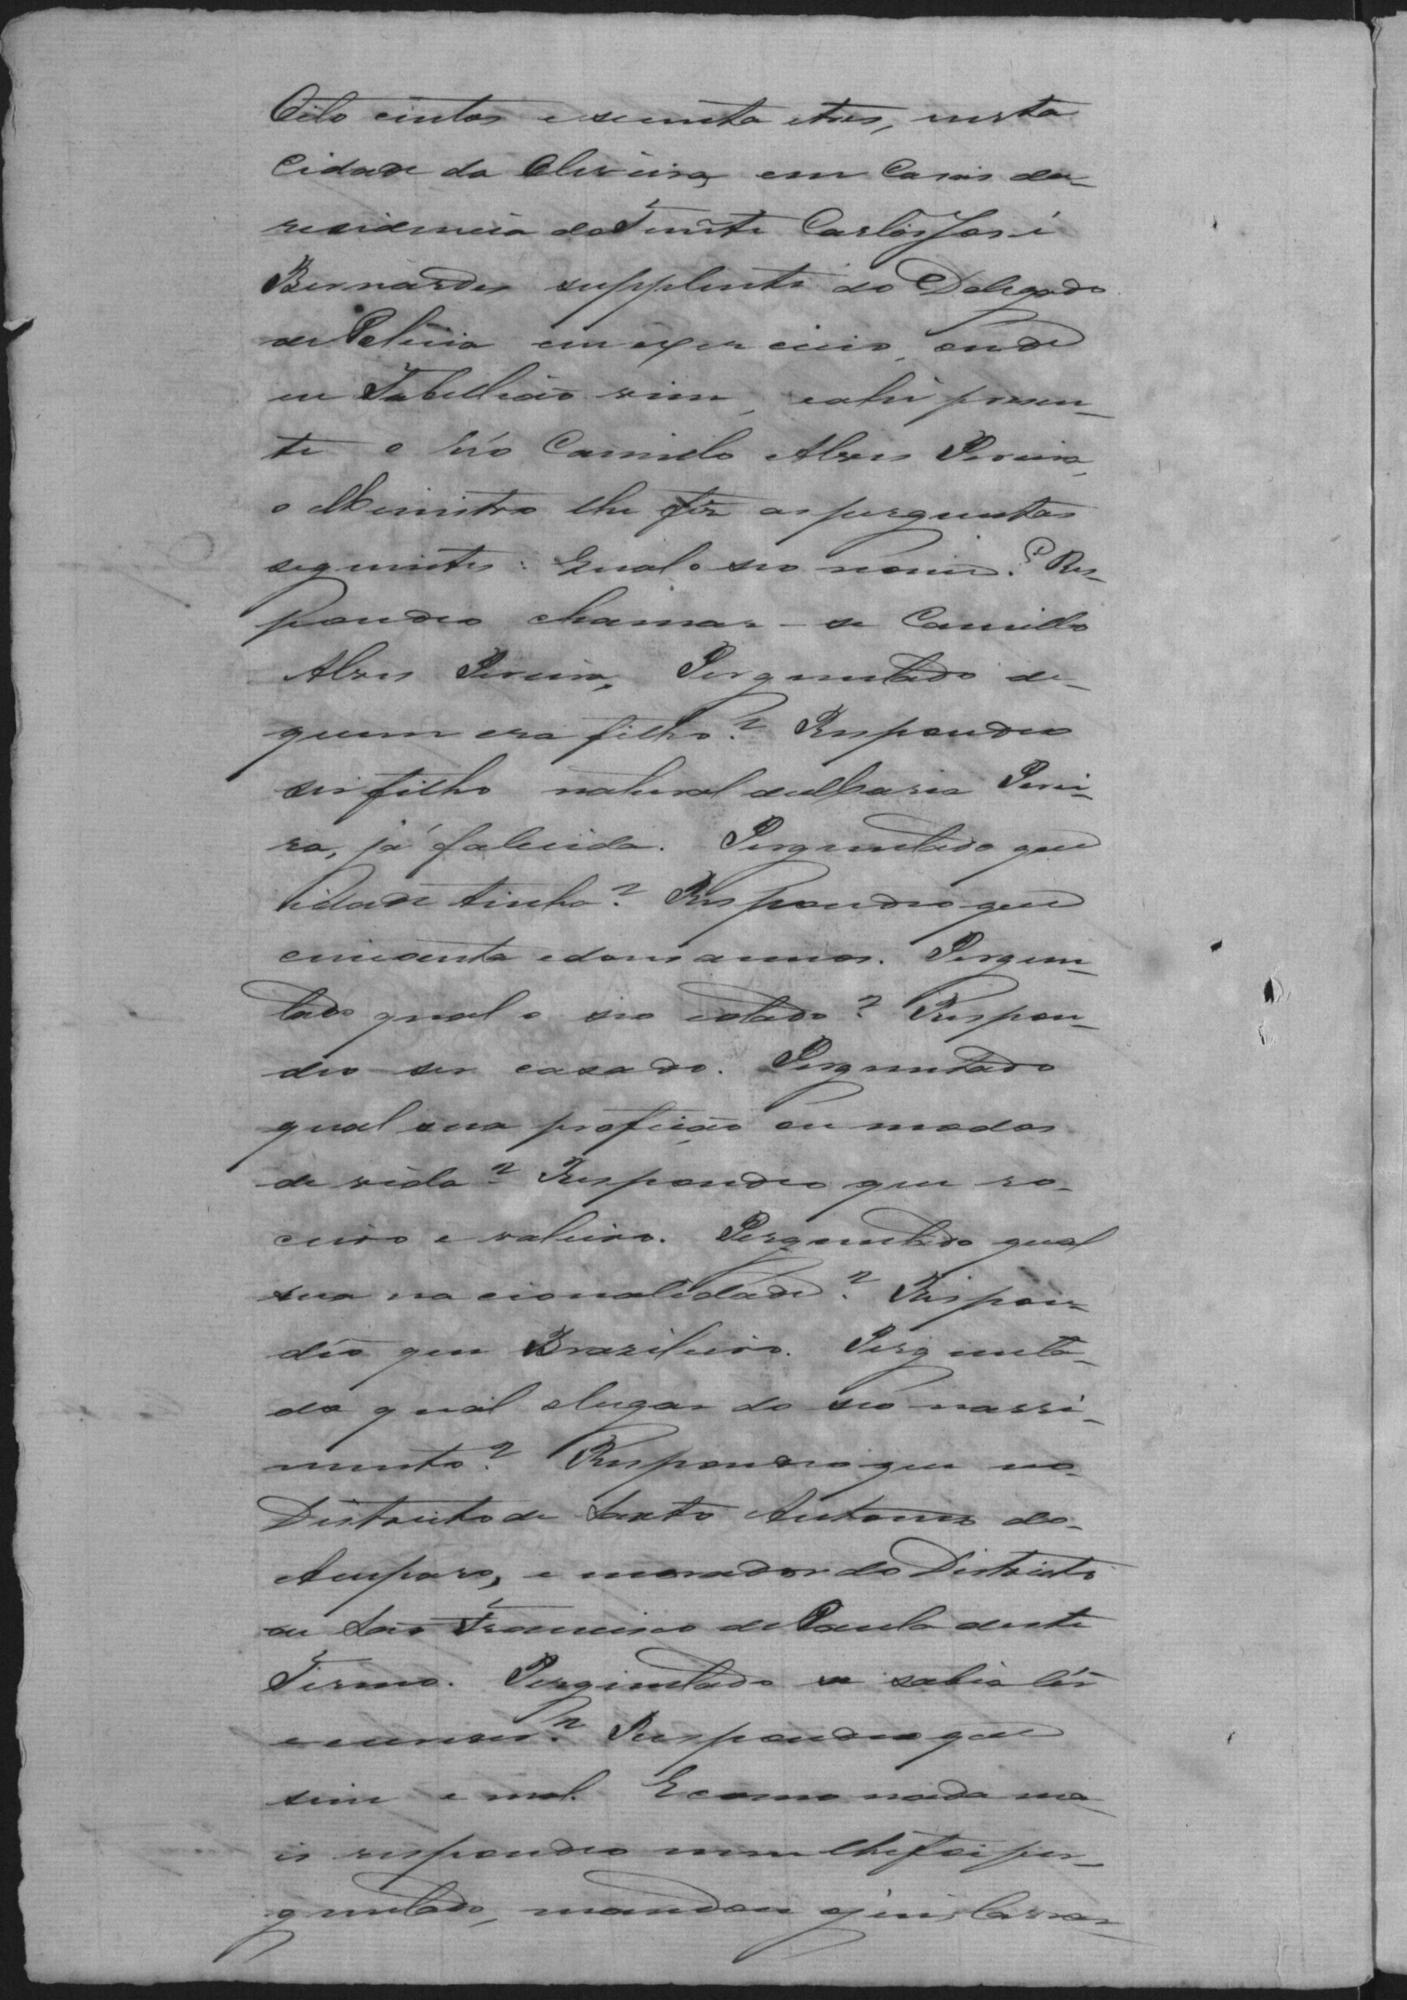 Oito centos e secenta e tres, nesta
Cidade da Oliveira, em Casas da
residencia do Tenente Carlos José
Bernardes supplente do Delegado
de Policia em exercicio, onde
eu Tabellião vim, e ahi presen-
te o réo Camillo Alves Pereira,
o Ministro lhe fez as perguntas
seguintes: Qual o seo nome? Res-
pondeo chamar-se Camillo
Alves Pereira, Perguntado de
quem era filho? Respondeo
ser filho natural de Maria Perei-
ra, já falecida. Perguntado que
idade tinha? Respondeo que
cincoenta e dous annos. Pergun-
tado qual o seo estado? Respon-
deo ser casado. Perguntado
qual sua profição ou modos
de vida? Respondeo que ro-
ceiro e saleiro. Perguntado qual
sua nacionalidade? Respon-
deo que Brazileiro. Pergunta-
do qual o lugar do seo nassi-
mento? Respondeo que no
Districto de Santo Antonio do
Amparo, e morador do Districto
de São Francisco de Paula deste
Termo. Perguntado se sabia lêr
e escrever? Respondeo que
sim e mal. E como nada ma-
is respondeo nem lhe foi per-
guntado, mandou o juis lavrar